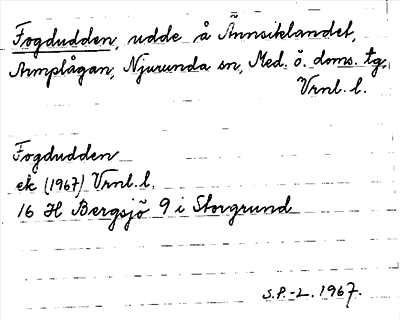 Fogdudden, udde å Ånnsiklandet,
Armplågan, Njurunda sn, Med. ö. doms. tg.
Vrnl. l.
Fogdudden
ek (1967) Vrnl. l.
16 H Bergsjö 9 i Storgrund
S.P.-L. 1967.